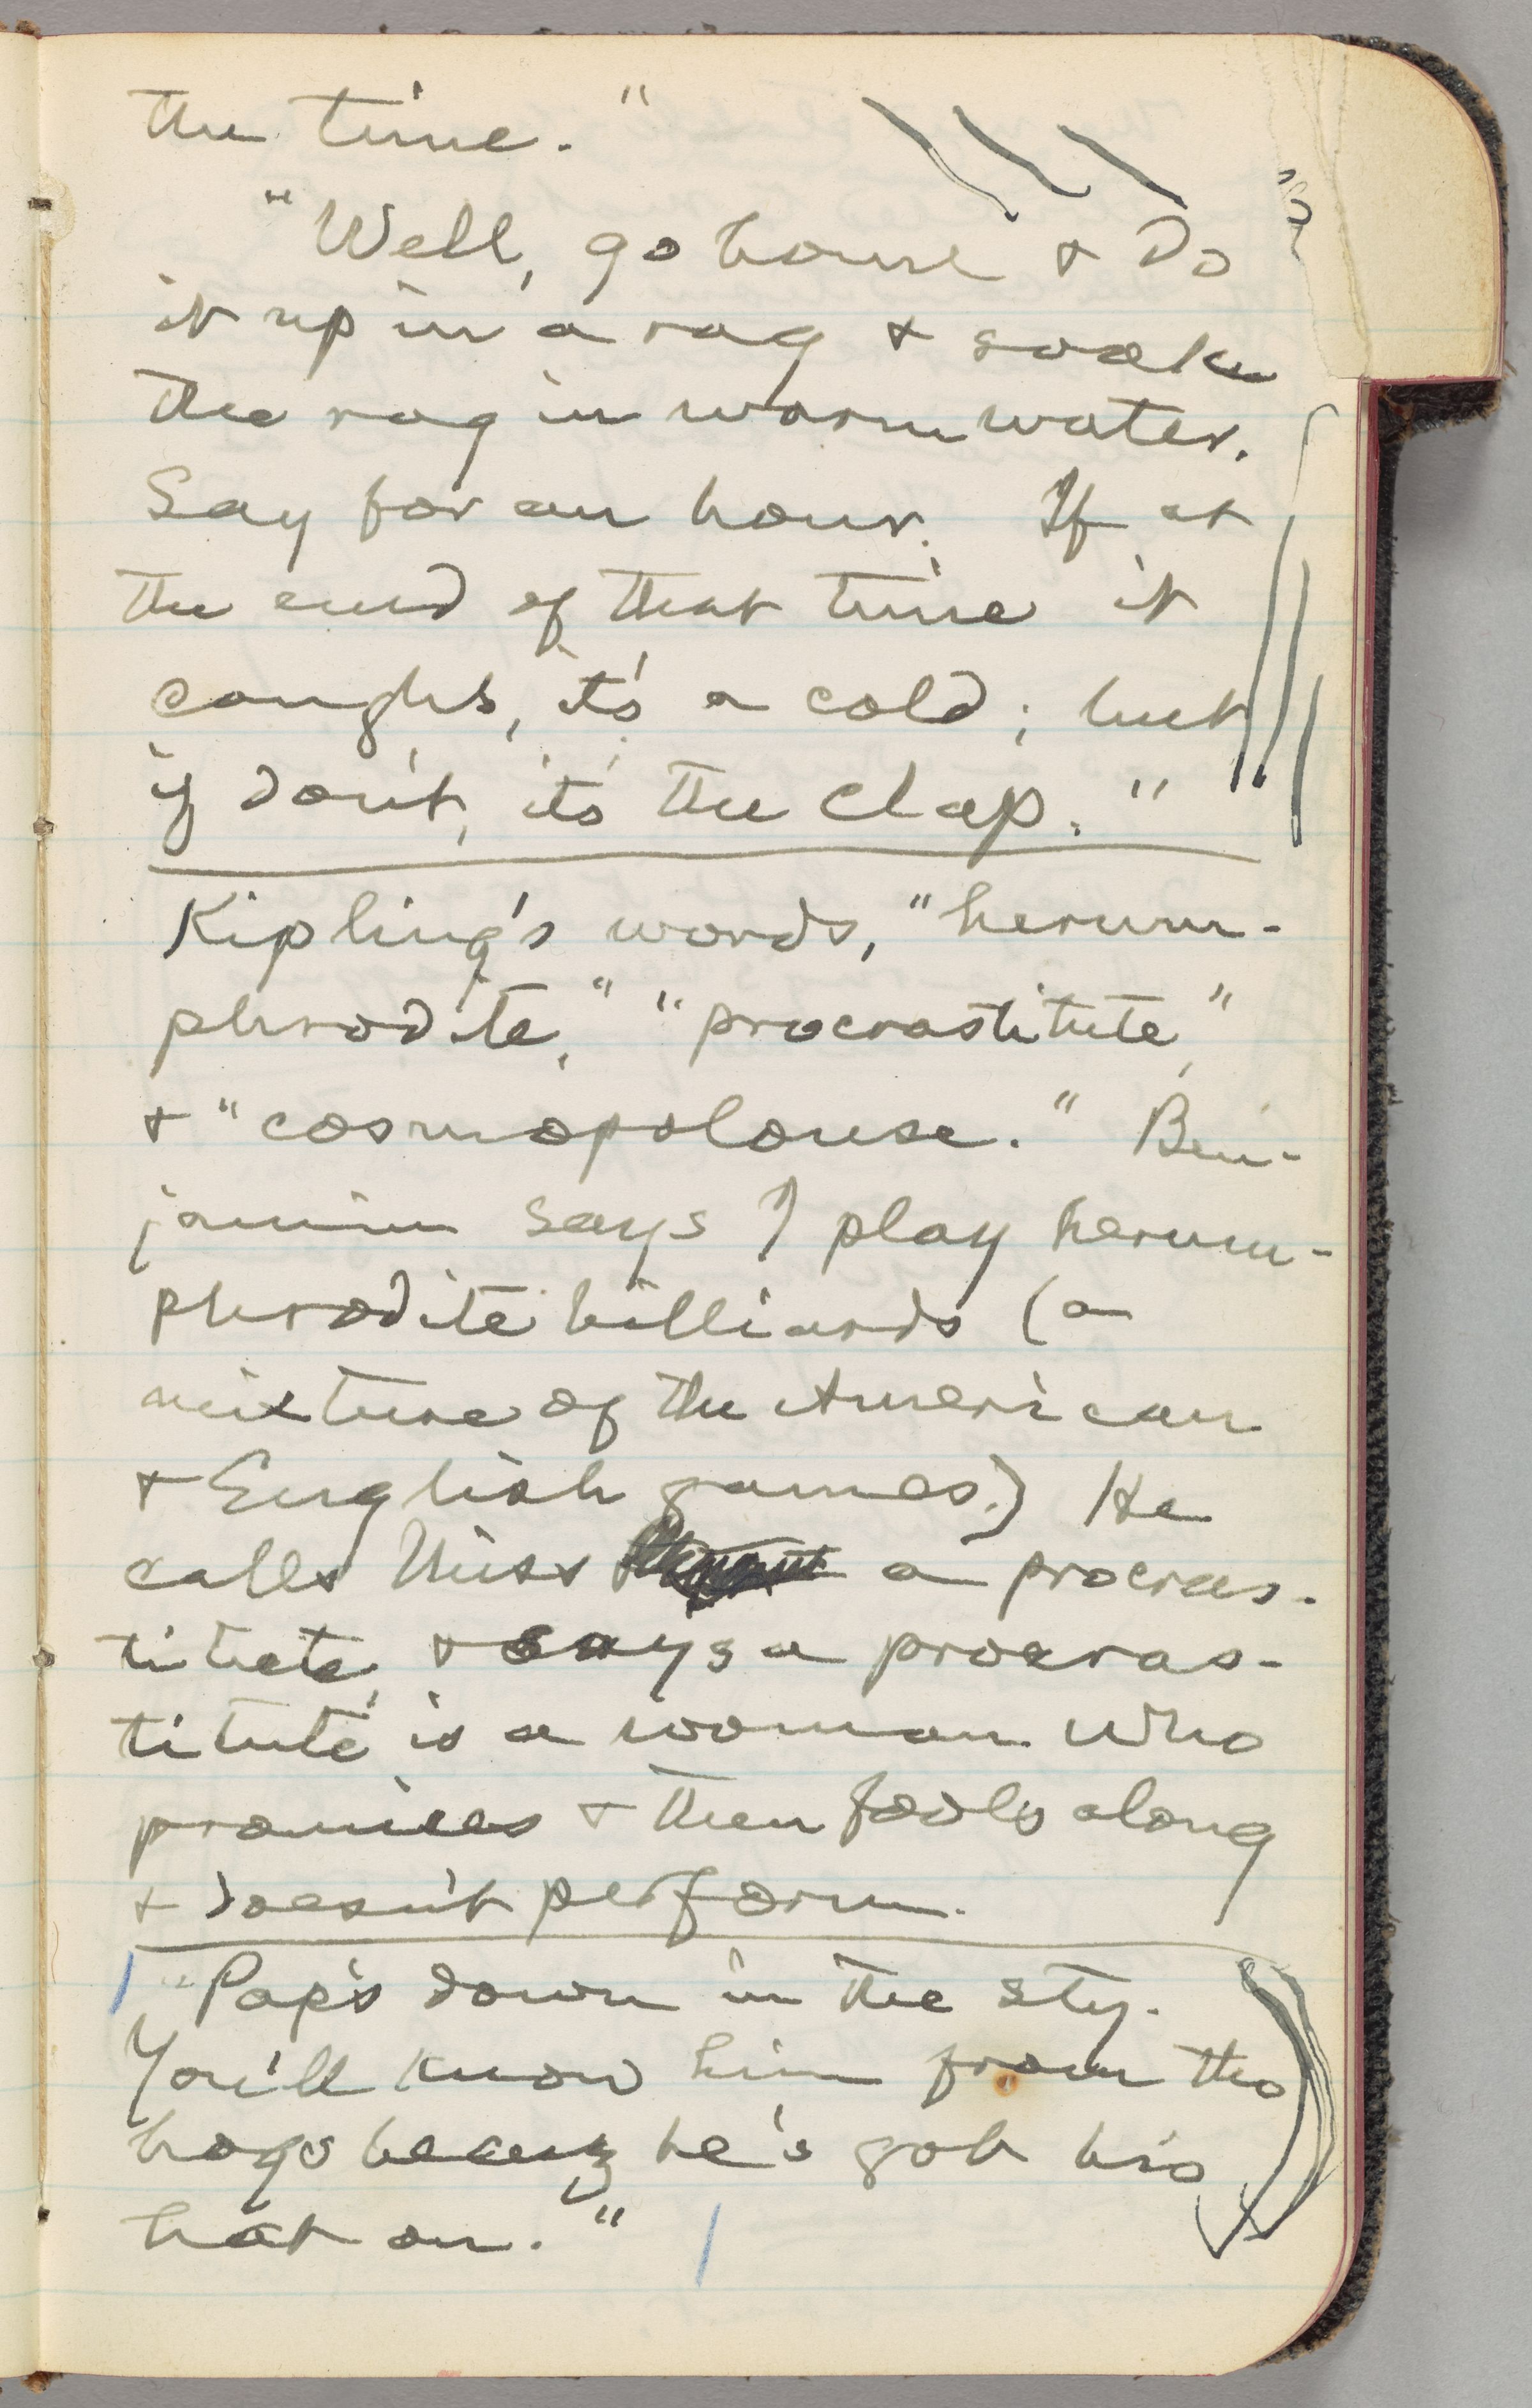 the time."
"Well, go home & do
it up in a rag & soak
the rag in warm water.
Say for an hour. If at
the end of that time it
coughs, it's a cold; but
if don't, it's the clap."
Kipling's words, "herum-
phrodite," "procrastitute,"
& "cosmopolouse." Ben-
jamin says I play herum-
phrodite billiards (a
mixture of the American
& English games.) He
calls Miss a procras-
titute, & says a procras-
titute is a woman who
promises & then fools along
& doesn't perform.
"Pap's down in the sty.
You'll know him from the
hogs becuz he's got his
hat on."